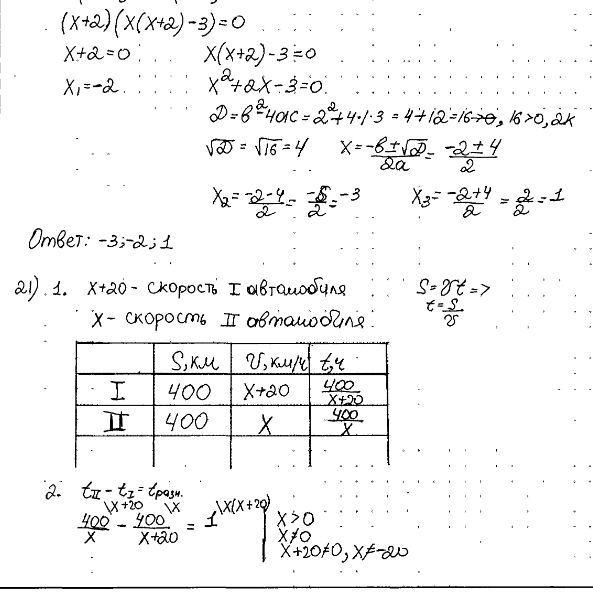 (x+2)(x(x+2)-3)=0
x+2=0 x(x+2)-3=0
x₁=-2 x²+2x-3=0
D=b²-4ac=2²+4·1·3=4+12=16>0, 16>0, 2к
√D=√16=4 x=(-b±√D)/2a=(-2±4)/2
x₂=(-2-4)/2=-6/2=-3 x₃=(-2+4)/2=2/2=1
Ответ: -3;-2;1
21) 1. x+20 - скорость I автомобиля S=vt=>
x - скорость II автомобиля t=S/v
S,км v,км/ч t,ч
I 400 x+20 400/(x+20)
II 400 x 400/x
2. tII - tI = tразн.
400/x \x+20 - 400/(x+20) \x = 1 \x(x+20) x>0
x≠0
x+20≠0, x≠-20